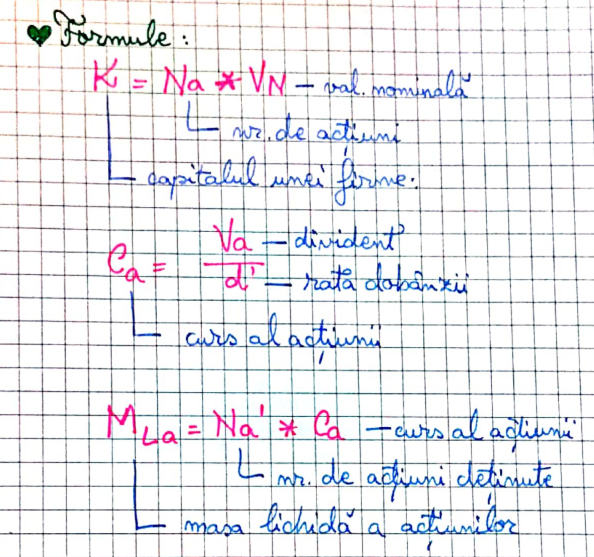 ♥ Formule:
K = Na * VN – val. nominală
nr. de acțiuni
capitalul unei firme.
Ca = Va / d' – divident
– rata dobânzii
curs al acțiunii
MLa = Na' * Ca – curs al acțiunii
nr. de acțiuni deținute
masa lichidă a acțiunilor